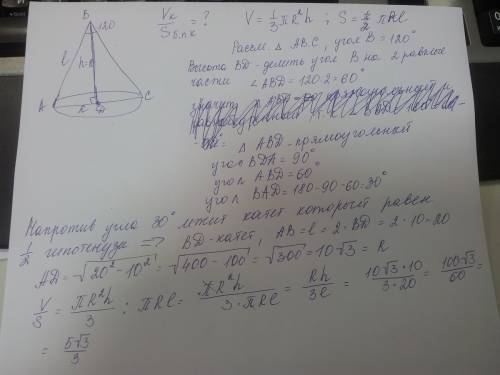 B
120
l
h=10
A
R
D
C
Vк / Sб.п.к = ?   V = 1/3 πR²h ; S = πRl
Рассм. △ ABC, угол B = 120°
Высота BD - делит угол B на 2 равные
части   ∠ABD = 120:2 = 60°
△ ABD - прямоугольный
угол BDA = 90°
угол ABD = 60°
угол BAD = 180-90-60 = 30°
Напротив угла 30° лежит катет который равен
1/2 гипотенузы => BD-катет, AB = l = 2·BD = 2·10=20
AD = √20²-10² = √400-100 = √300 = 10√3 = R
V/S = πR²h/3 : πRl = πR²h/3·πRl = Rh/3l = 10√3·10/3·20 = 100√3/60 =
= 5√3/3